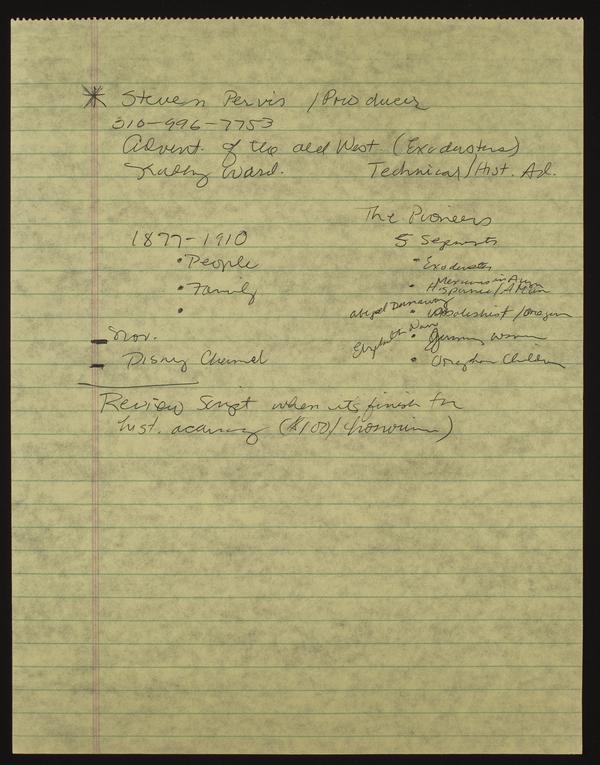 * Steven Pervis / Producer
310-996-7753
Advent. of the old West. (Exodusters)
Kathy Ward. Technical/Hist. Ad.
The Pioneers
1877-1910 5 Segments
• People • Exodusters
• Family • Hispanic/
Mexicans in
• Abigail Dunaway /Oregon
Nov. Elizabeth • women
- Disney Channel • Orephan Children
Review Script when its finish for
hist. accuracy ($100/honorium)